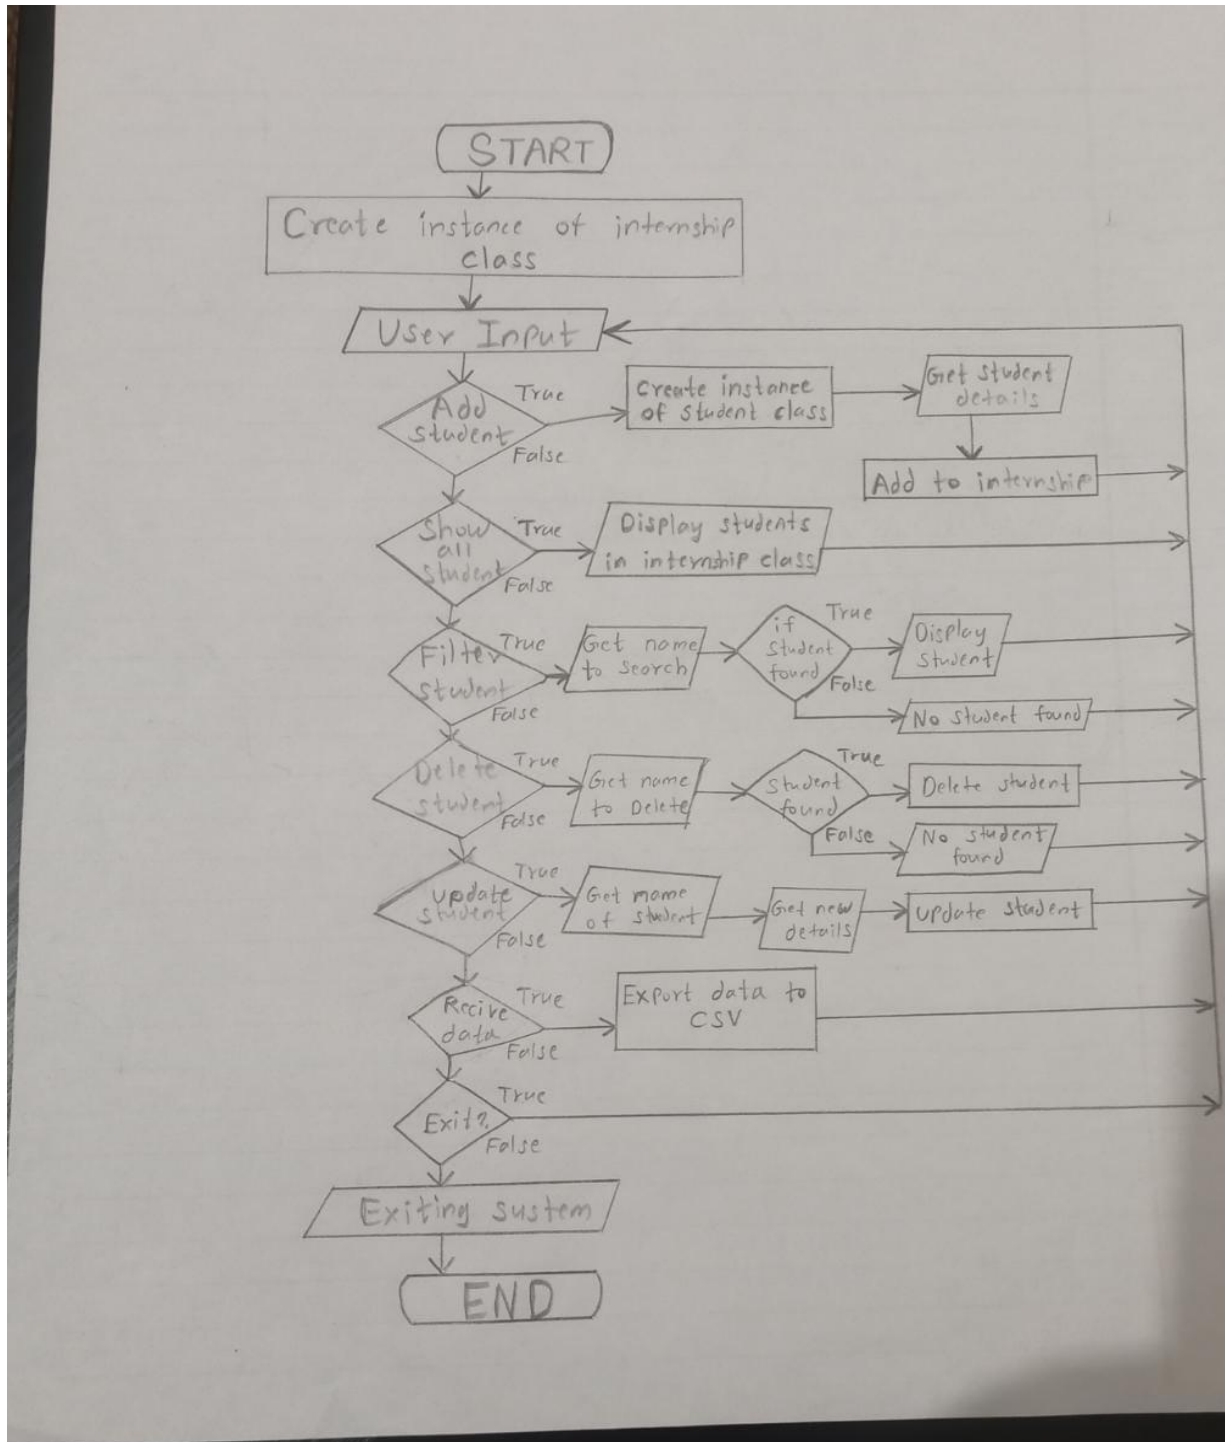 START
Create instance of internship
class
User Input
Add
student
True
False
Create instance
of student class
Get student
details
Add to internship
Show
all
student
True
False
Display students
in internship class
Filter
student
True
False
Get name
to search
if
student
found
True
False
Display
student
No student found
Delete
student
True
False
Get name
to Delete
student
found
True
False
Delete student
No student
found
update
student
True
False
Get name
of student
Get new
details
update student
Recive
data
True
False
Export data to
CSV
Exit?
True
False
Exiting sustem
END